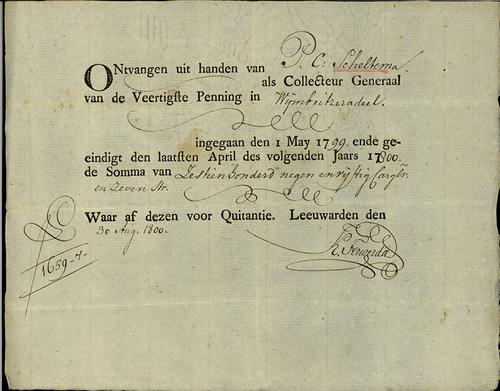 ONtvangen uit handen van P. C. Scheltema.
als Collecteur Generaal
van de Veertigste Penning in Wijmbritzeradeel.
ingegaan den 1 May 1799. ende ge-
eindigt den laatsten April des volgenden Jaars 1800.
de Somma van Sestien honderd negen en vijftig Cargls.
en Zeven Str.
Waar af dezen voor Quitantie. Leeuwarden den
30 Aug. 1800.
1659-7-
Ferwerda